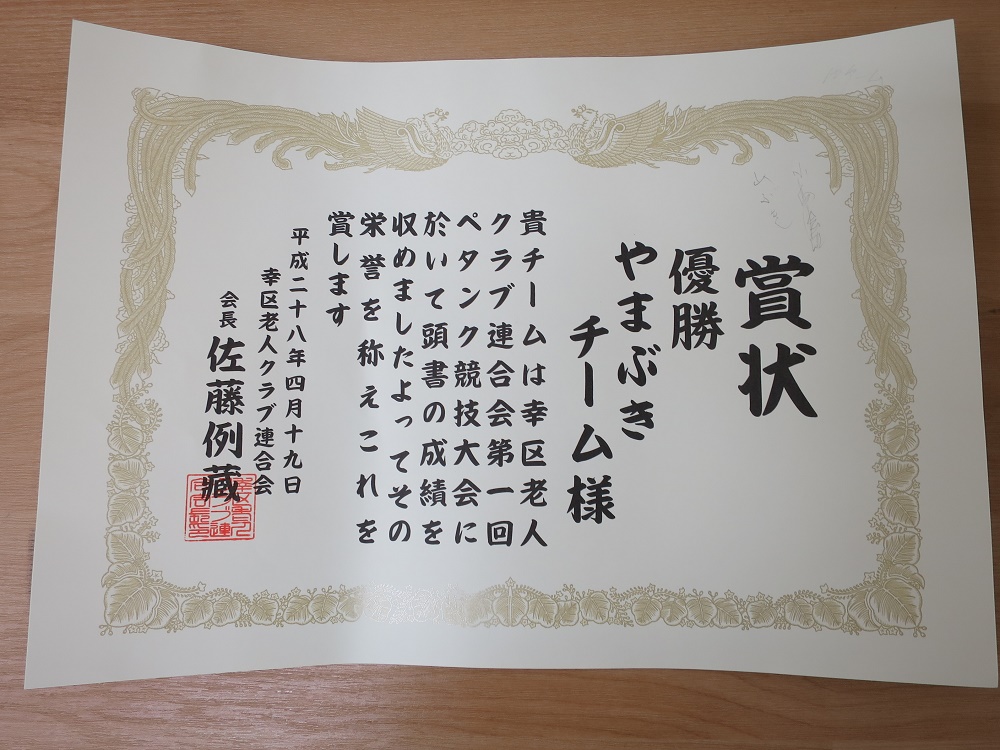 賞状
優勝
やまぶき
チーム様
貴チームは幸区老人
クラブ連合会第一回
ペタンク競技大会に
於いて頭書の成績を
収めましたよってその
栄誉を称えこれを
賞します
平成二十八年四月十九日
幸区老人クラブ連合会
会長 佐藤例藏